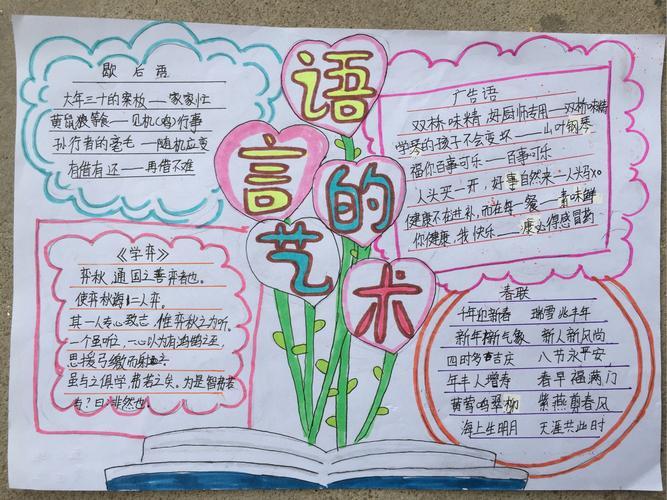 语言的艺术
歇后语
大年三十的案板——家家忙
黄鼠狼等食——见机(鸡)行事
孙行者的毫毛——随机应变
有借有还——再借不难
广告语
双桥味精,好厨师专用——双桥味精
学琴的孩子不会变坏——山叶钢琴
福你百事可乐——百事可乐
人头买一开,好事自然来——人头马xo
健康不在进补,而在每一餐——素味鲜
你健康,我快乐——康必得感冒药
《学弈》
弈秋,通国之善弈者也。
使弈秋诲二人弈。
其一人专心致志,惟弈秋之为听。
一个虽听之,一心以为有鸿鹄之至
思援弓缴而射之
虽与之俱学,弗若之矣。为是智弗若
与?曰:非然也。
春联
千年迎新春 瑞雪兆丰年
新年新气象 新人新风尚
四时多吉庆 八节永平安
年丰人增寿 春早福满门
黄莺鸣翠柳 紫燕剪春风
海上生明月 天涯共此时